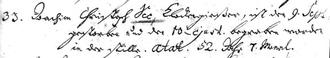 33. Joachim Christoph See, ist den 9. Sept.
gestorben und den 10 ejusd. begraben worden
in der Stille. Aetat. 52. Jahr. 7. Monat.